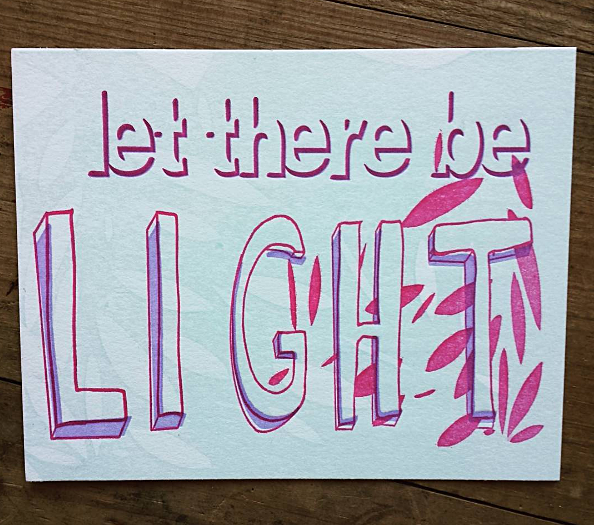 let there be
LIGHT